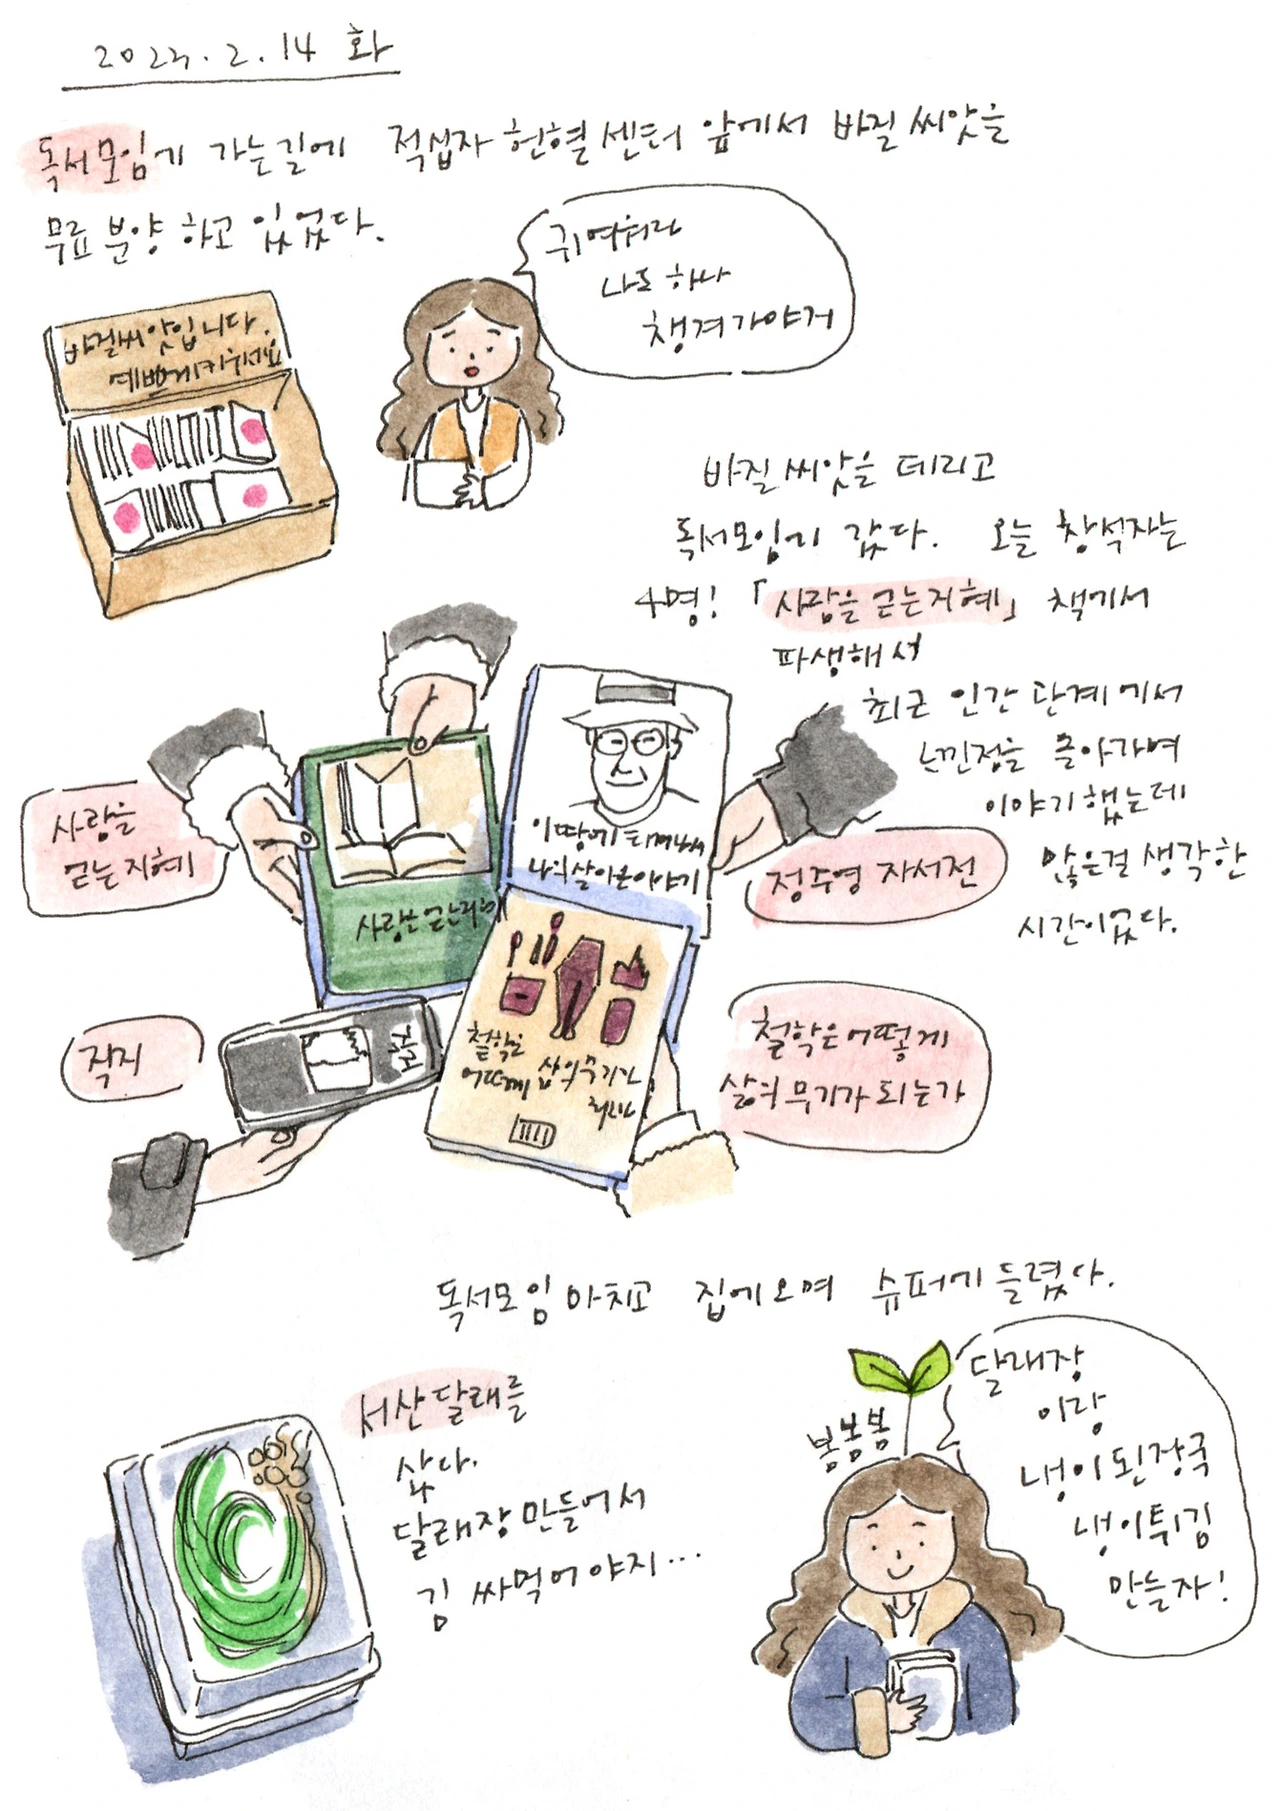 2023.2.14 화
독서모임에 가는길에 적십자 헌혈센터 앞에서 바질씨앗을
무료 분양 하고 있었다.
귀여워라
나도 하나
챙겨가야거
바질씨앗입니다.
예쁘게키우세요
바질씨앗을 데리고
독서모임에 갔다. 오늘 참석자는
4명! 「사람을 얻는지혜」 책에서
파생해서
최근 인간관계에서
느낀점을 돌아가며
이야기했는데
많은걸 생각한
시간이었다.
사람을
얻는지혜
사람을 얻는지혜
이땅에 태어나서
나의살아온이야기
정주영 자서전
직지
직지
철학은
어떻게 삶의무기가
되는가
철학은어떻게
삶의 무기가 되는가
독서모임 마치고 집에오며 슈퍼에 들렸다.
서산달래를
샀다.
달래장만들어서
김 싸먹어야지...
봄봄봄
달래장
이랑
냉이된장국
냉이튀김
만들자!